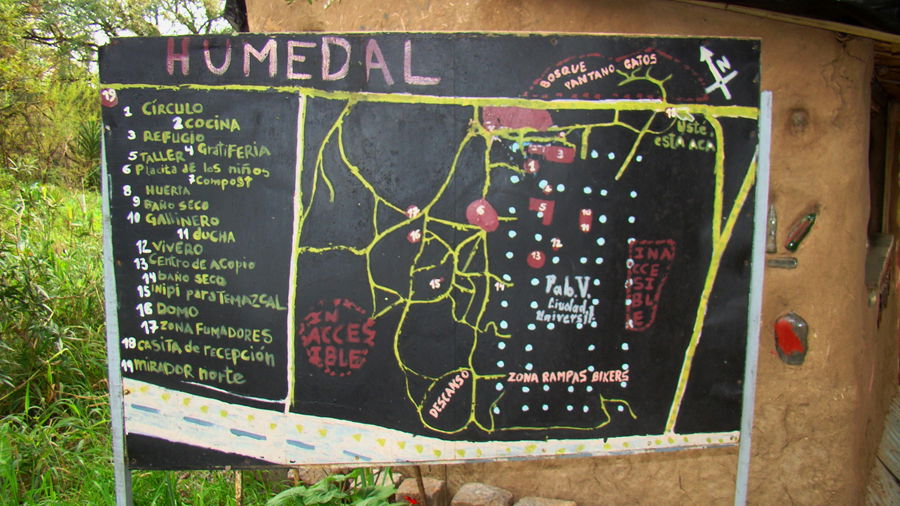 HUMEDAL
BOSQUE GATOS
PANTANO
N
19
18
Uste
esta aca
1 CÍRCULO
2 COCINA
3 REFUGIO
4 GratiFERIA
5 TALLER
6 Placita de los niños
7 Compost
8 HUERTA
9 BAÑO SECO
10 GALLINERO
11 DUCHA
12 VIVERO
13 Centro de ACOPIO
14 BAÑO SECO
15 INIPI para TEMAZCAL
16 DOMO
17 ZONA FUMADORES
18 CASITA de recepción
19 MIRADOR norte
3
1
4
17
6
5
10
11
16
12
13
15
14
INA
CCE
SI
BLE
Pab V
Ciudad
Universit.
IN
ACCES
IBLE
DESCANSO
ZONA RAMPAS BIKERS